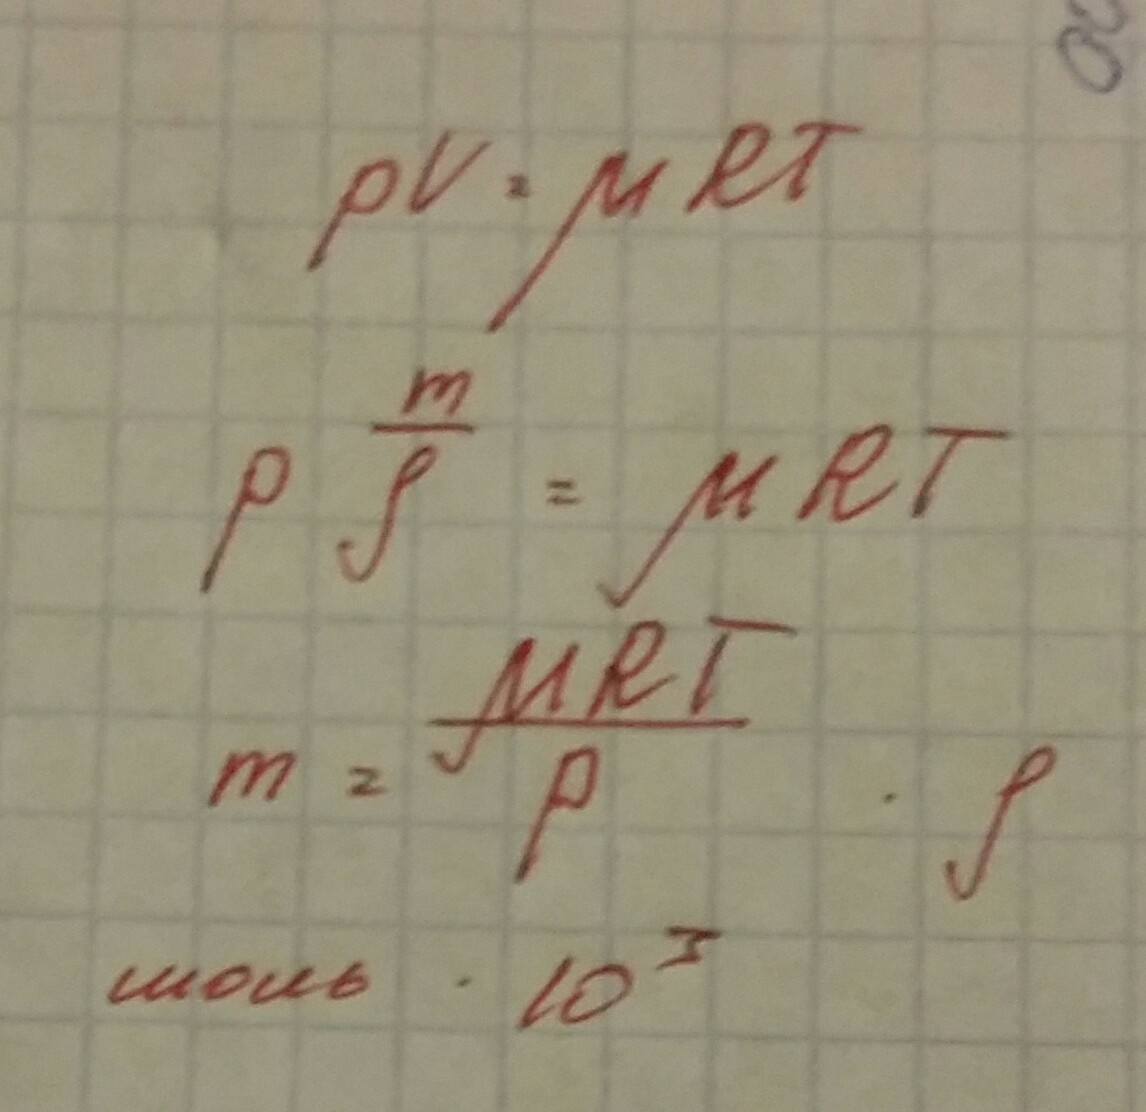 pV = μRT
p m/ρ = μRT
m = μRT/p · ρ
моль · 10³